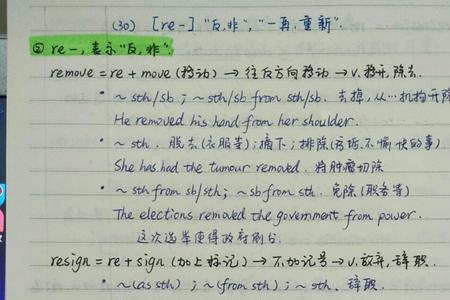 (30) [re-] "反,非", "一再,重新".
② re-,表示"反,非".
remove = re + move (移动) → 往反方向移动 → v. 移开,除去.
• ~ sth/sb ; ~ sth/sb from sth/sb. 去掉,从…机构开除
He removed his hand from her shoulder.
• ~ sth. 脱去(衣服等);摘下;排除(污垢.不愉快的事)
She has had the tumour removed. 将肿瘤切除
• ~ sth from sb/sth; ~ sb from sth. 免除(职务等)
The elections removed the government from power.
这次选举使得政府倒台.
resign = re + sign (加上标记) → 不加记号 → v. 放弃,辞职.
• ~(as sth) ; ~(from sth) ; ~ sth. 辞职